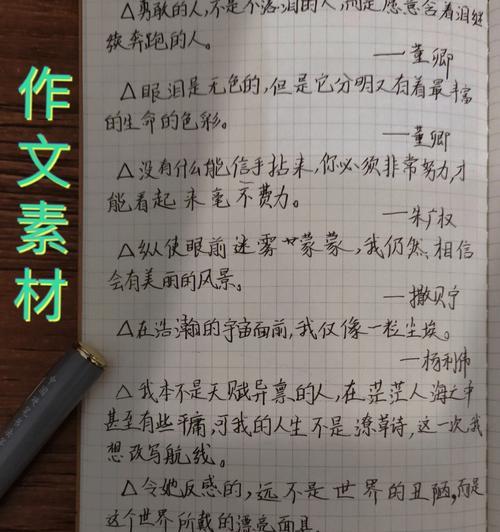 △勇敢的人,不是不落泪的人,而是愿意含着泪继
续奔跑的人。
——董卿
△眼泪是无色的,但是它分明又有着最丰富
的生命的色彩。
——董卿
△没有什么能信手拈来,你必须非常努力,才
能看起来毫不费力。
——朱广权
△纵使眼前迷雾蒙蒙,我仍然相信
会有美丽的风景。
——撒贝宁
△在浩瀚的宇宙面前,我仅像一粒尘埃。
——杨利伟
△我本不是天赋异禀的人,在茫茫人海之中
甚至有些平庸,可我的人生不是潦草诗,这一次,我
想改写航线。
△令她反感的,远不是世界的丑陋,而是
这个世界所戴的漂亮面具。
作文素材